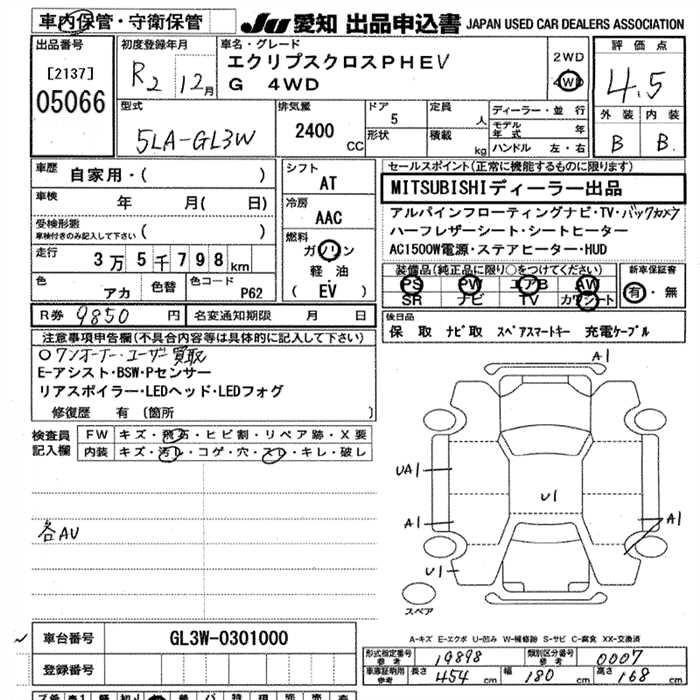 車内保管・守衛保管
JU 愛知 出品申込書 JAPAN USED CAR DEALERS ASSOCIATION
出品番号
[2137]
05066
初度登録年月
R2 12月
車名・グレード
エクリプスクロスPHEV
G 4WD
2WD
4WD
評価点
4.5
外装 内装
B B
型式
5LA-GL3W
排気量
2400 CC
ドア
5
形状
定員
人
積載
kg
ディーラー・並行
モデル年式 年
ハンドル 左・右
車歴
自家用・( )
車検
年 月( 日)
受検形態
車検付きのみ記入して下さい ( )
走行
3万5千798km
色
アカ
色替
色コード
P62
シフト
AT
冷房
AAC
燃料
ガソリン
軽油
( EV )
セールスポイント(正常に機能するものに限ります)
MITSUBISHIディーラー出品
アルパインフローティングナビ・TV・バックカメラ
ハーフレザーシート・シートヒーター
AC1500W電源・ステアヒーター・HUD
装備品(純正品に限り○をつけてください)
PS PW エアB AW
SR ナビ TV カワシート
新車保証書
有・無
R券 9850 円
名変通知期限 月 日
後日品
保 取 ナビ取 スペアスマートキー 充電ケーブル
注意事項申告欄(不具合内容等は具体的に記入して下さい)
○ワンオーナー・ユーザー買取
E-アシスト・BSW・Pセンサー
リアスポイラー・LEDヘッド・LEDフォグ
修復歴 有 (箇所 )
検査員記入欄
FW キズ・飛石・ヒビ割・リペア跡・X要
内装 キズ・汚レ・コゲ・穴・スレ・キレ・破レ
各AU
A1
UA1
U1
A1
A1
U1
スペア
A-キズ E-エクボ U-凹み W-補修跡 S-サビ C-腐食 XX-交換済
車台番号
GL3W-0301000
登録番号
形式指定番号
参考
19898
類別区分番号
参考
0007
車庫証明用
参考
長さ 454 cm 幅 180 cm 高さ 168 cm